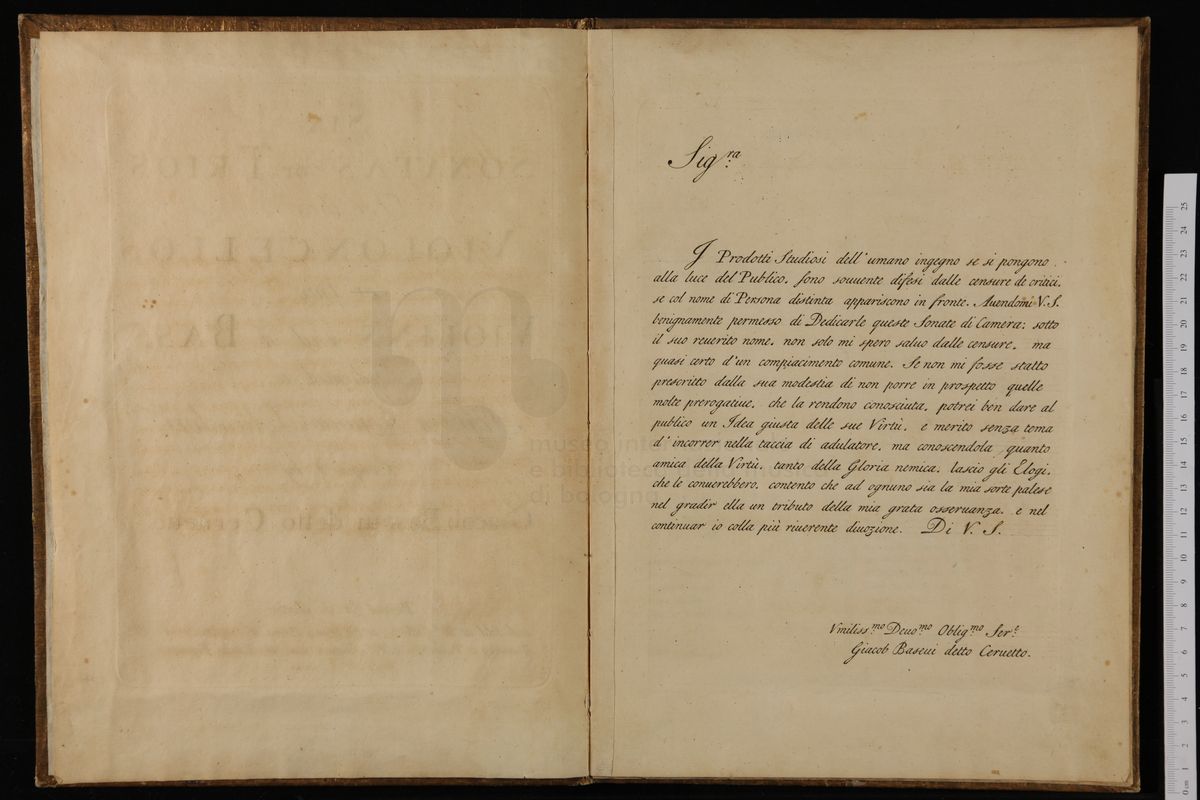 Sig.ra
I Prodotti Studiosi dell'umano ingegno se si pongono
alla luce del Publico, sono souuente difesi dalle censure de critici,
se col nome di Persona distinta appariscono in fronte. Auendomi V. S.
benignamente permesso di Dedicarle queste Sonate di Camera; sotto
il suo reuerito nome, non solo mi spero saluo dalle censure, ma
quasi certo d'un compiacimento comune. Se non mi fosse statto
prescritto dalla sua modestia di non porre in prospetto quelle
molte prerogatiue, che la rendono conosciuta, potrei ben dare al
publico un Idea giusta delle sue Virtù, e merito senza tema
d'incorrer nella taccia di adulatore, ma conoscendola quanto
amica della Virtù, tanto della Gloria nemica, lascio gli Elogi,
che le conuerebbero, contento che ad ognuno sia la mia sorte palese
nel gradir ella un tributo della mia grata osseruanza, e nel
continuar io colla più riuerente diuozione. Di V. S.
Vmiliss.mo Deuo.mo Oblig.mo Ser.e
Giacob Baseui detto Ceruetto.
SONATAS TRIOS
VIOLONCELLOS
BAS.
museo int
e bibliote
di bologna
25
24
23
22
21
20
19
18
17
16
15
14
13
12
11
10
9
8
7
6
5
4
3
2
1
0 cm